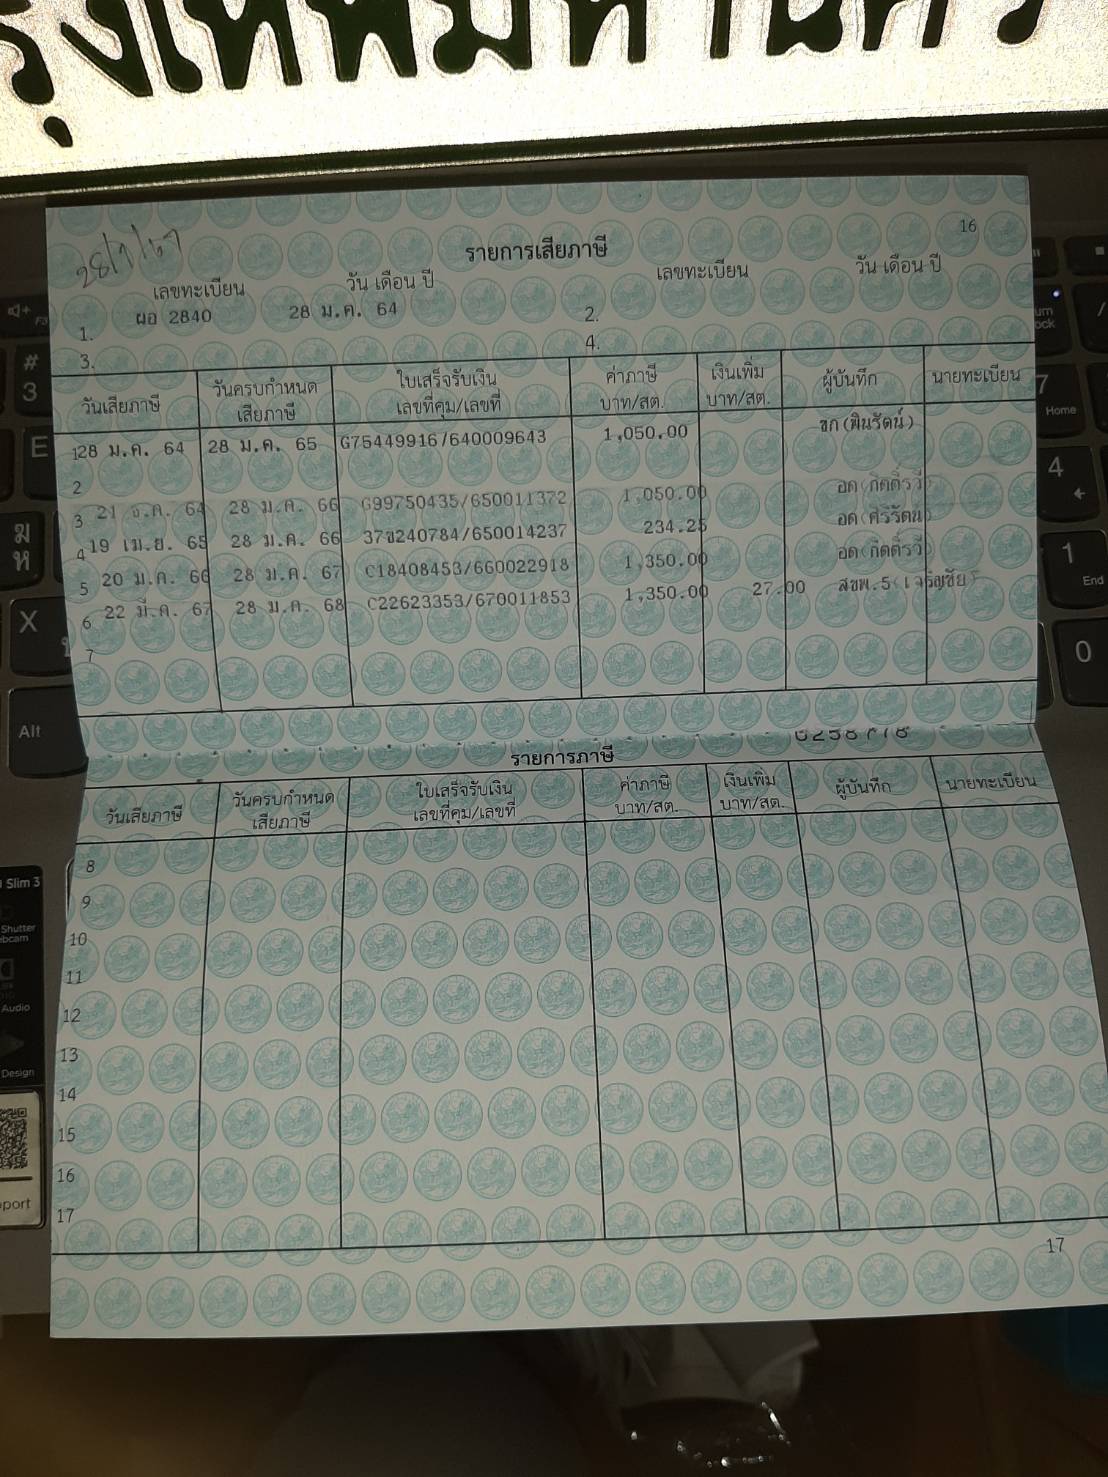 28/1/67
16
รายการเสียภาษี
เลขทะเบียน วัน เดือน ปี เลขทะเบียน วัน เดือน ปี
1. ผอ 2840 28 ม.ค. 64 2.
3. 4.
วันเสียภาษี วันครบกำหนดเสียภาษี ใบเสร็จรับเงิน เลขที่คุม/เลขที่ ค่าภาษี บาท/สต. เงินเพิ่ม บาท/สต. ผู้บันทึก นายทะเบียน
1 28 ม.ค. 64 28 ม.ค. 65 G75449916/640009643 1,050.00 ขก(พินรัตน์)
2
3 21 ธ.ค. 64 28 ม.ค. 66 G99750435/650011372 1,050.00 อด(กิตติ์รวี)
4 19 เม.ย. 65 28 ม.ค. 66 37ข240784/650014237 234.25 อด(ศิริรัตน์)
5 20 ม.ค. 66 28 ม.ค. 67 C18408453/660022918 1,350.00 อด(กิตติ์รวี)
6 22 มี.ค. 67 28 ม.ค. 68 C22623353/670011853 1,350.00 27.00 สขพ.5(เจริญชัย)
7
รายการภาษี
วันเสียภาษี วันครบกำหนดเสียภาษี ใบเสร็จรับเงิน เลขที่คุม/เลขที่ ค่าภาษี บาท/สต. เงินเพิ่ม บาท/สต. ผู้บันทึก นายทะเบียน
8
9
10
11
12
13
14
15
16
17
17
# 3
E
ม
ห
X
Alt
Slim 3
Shutter
Audio
Design
7
Home
4
1
End
0